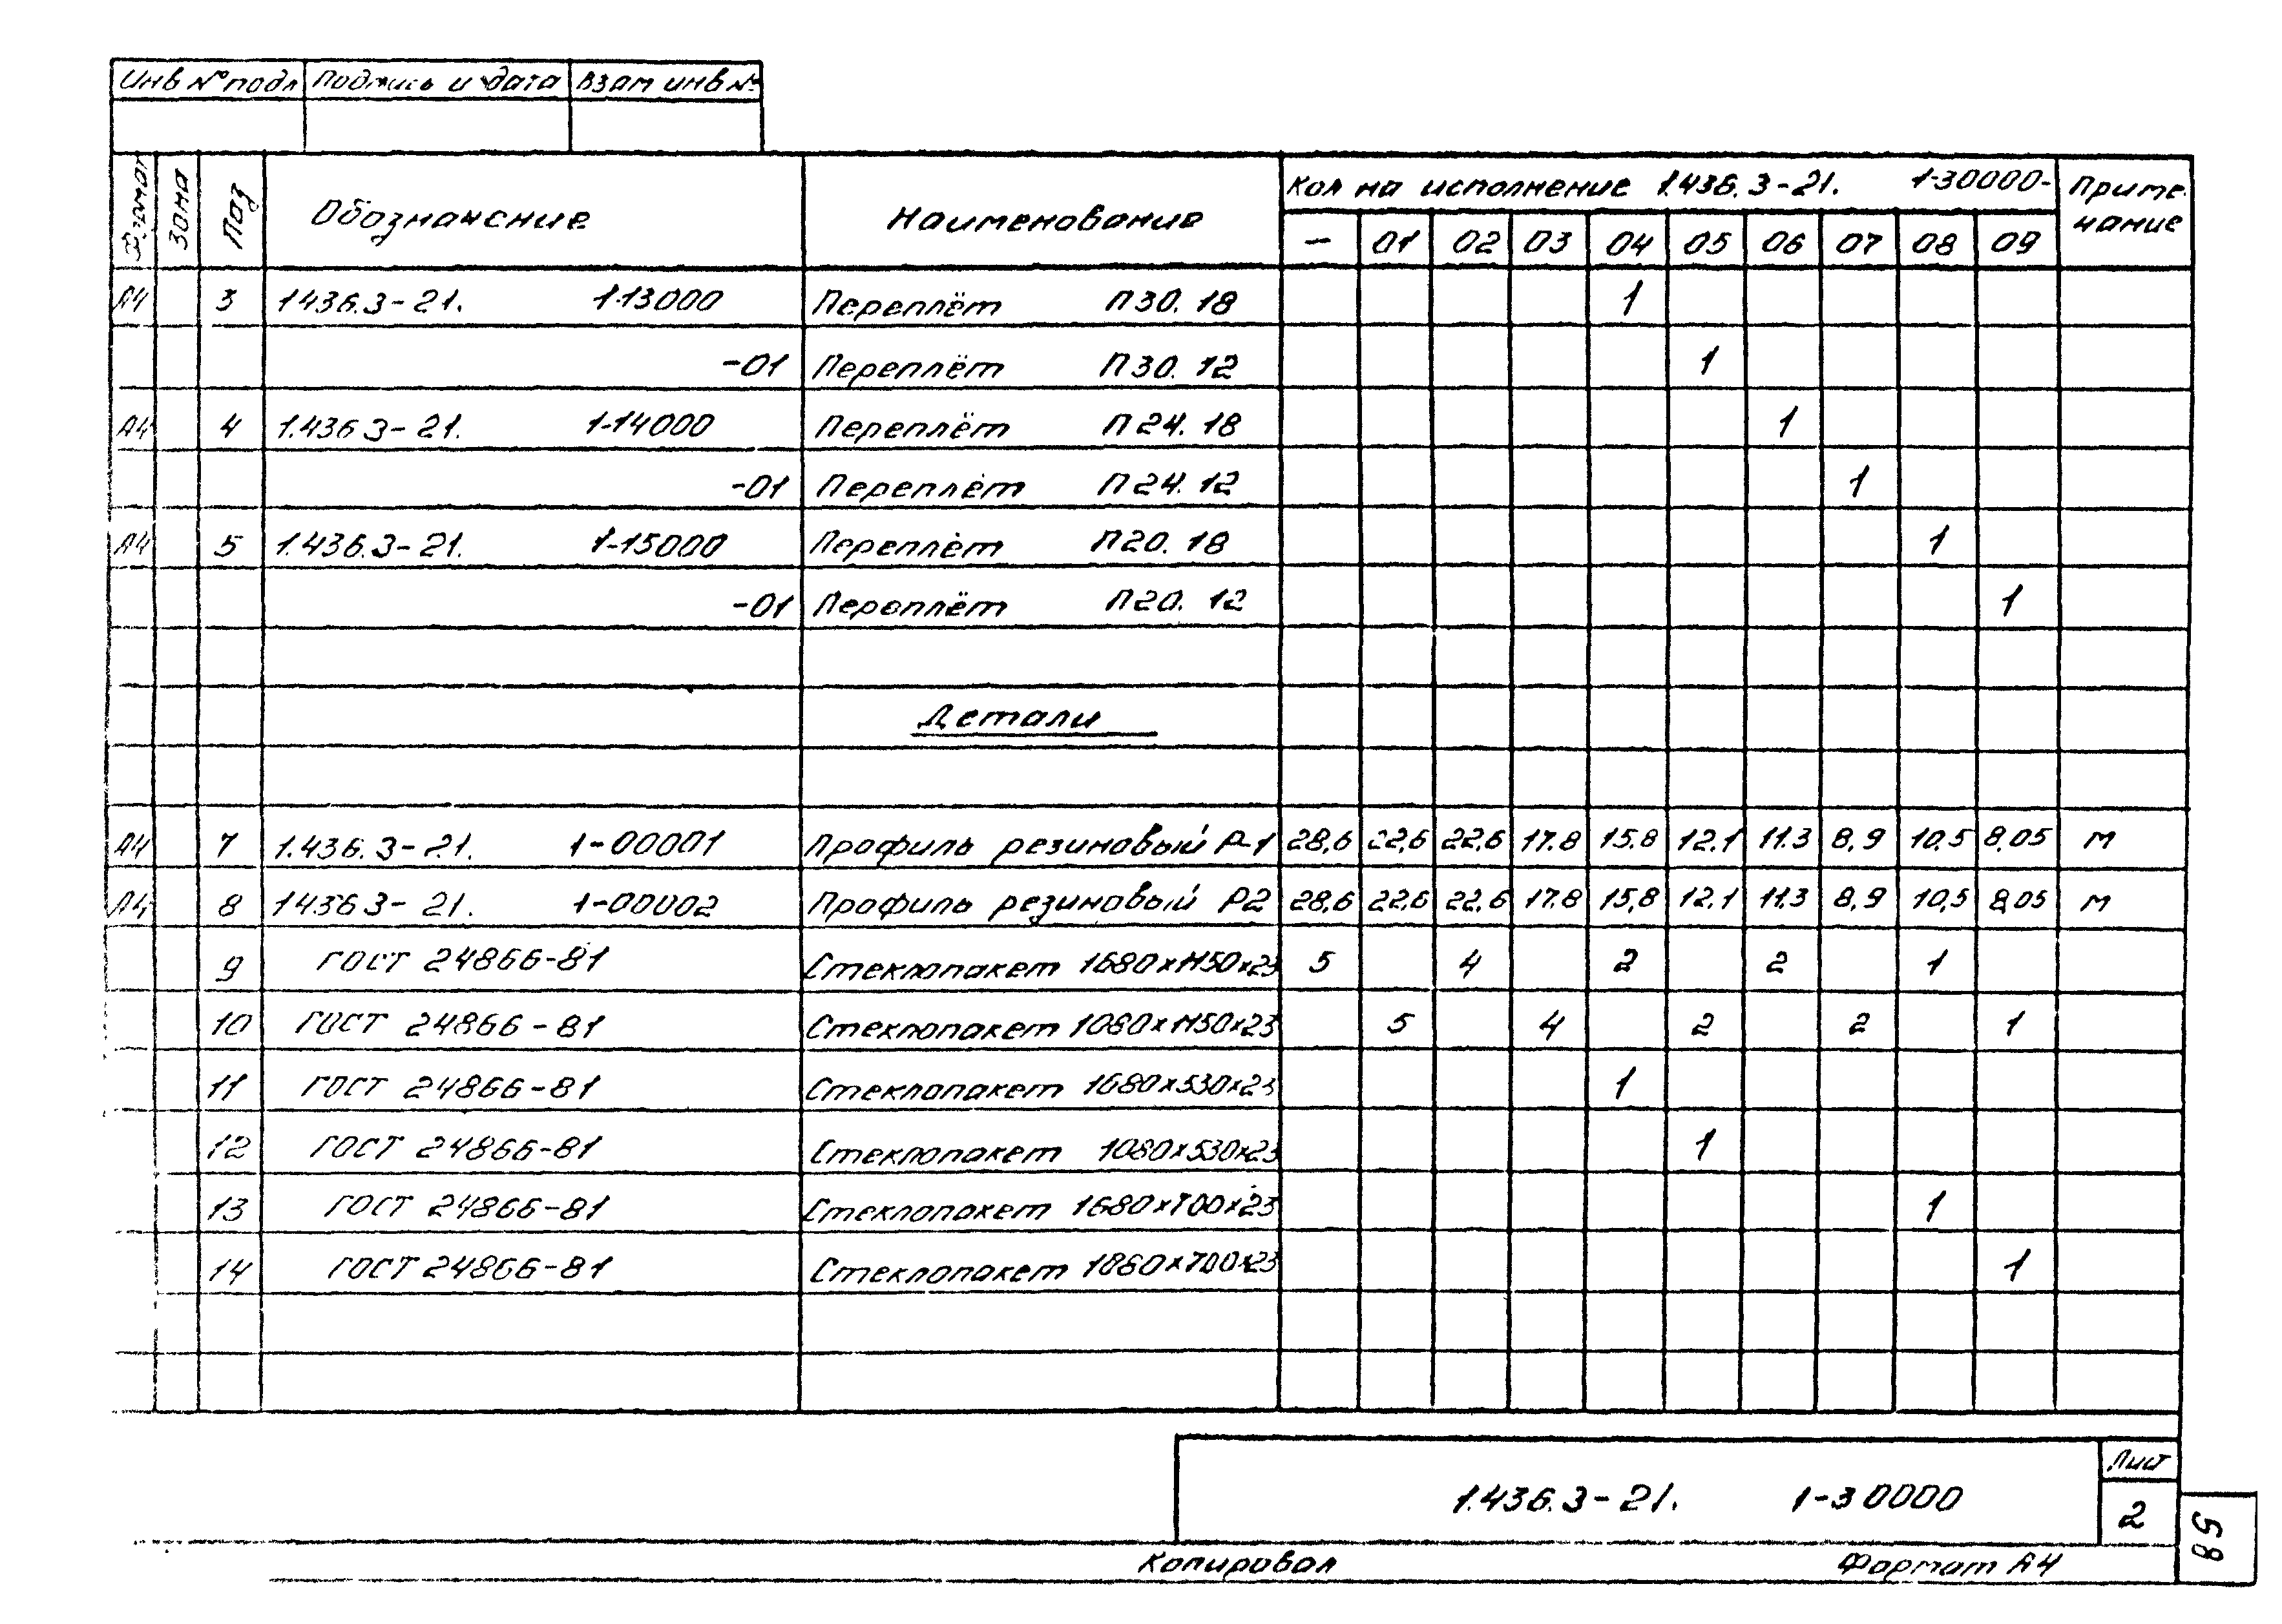 Инв № подл Подпись и дата Взам инв №
Формат Зона Поз Обозначение Наименование Кол на исполнение 1.436.3-21. 1-30000- Приме-
чание
— 01 02 03 04 05 06 07 08 09
А4 3 1436.3-21. 1-13000 Переплёт П30.18 1
-01 Переплёт П30.12 1
А4 4 1.436 3-21. 1-14000 Переплёт П24.18 1
-01 Переплёт П24.12 1
А4 5 1.436.3-21. 1-15000 Переплёт П20.18 1
-01 Переплёт П20.12 1
Детали
А4 7 1.436.3-21. 1-00001 Профиль резиновый Р-1 28,6 22,6 22,6 17.8 15.8 12.1 11.3 8,9 10,5 8,05 м
А4 8 1436 3-21. 1-00002 Профиль резиновый Р2 28,6 22,6 22,6 17.8 15,8 12,1 11.3 8,9 10,5 8,05 м
9 ГОСТ 24866-81 Стеклопакет 1680×1150×23 5 4 2 2 1
10 ГОСТ 24866-81 Стеклопакет 1080×1150×23 5 4 2 2 1
11 ГОСТ 24866-81 Стеклопакет 1680×530×23 1
12 ГОСТ 24866-81 Стеклопакет 1080×530×23 1
13 ГОСТ 24866-81 Стеклопакет 1680×700×23 1
14 ГОСТ 24866-81 Стеклопакет 1860×700×23 1
1.436.3-21. 1-30000
Лист
2
58
Копировал Формат А4